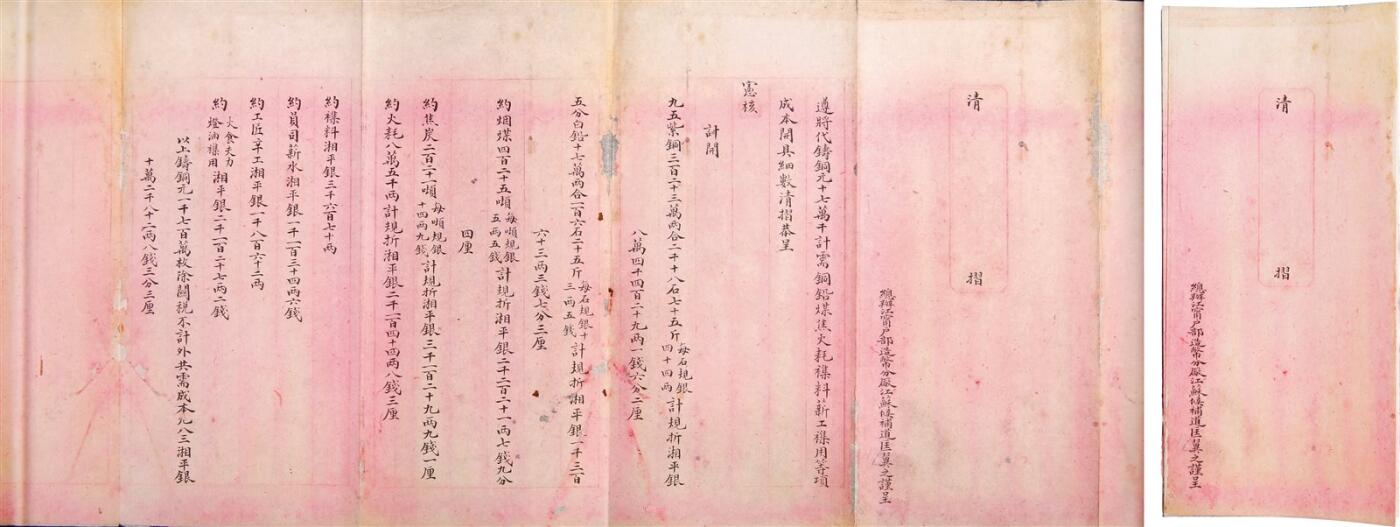 清摺
總辦江甯戶部造幣分廠江蘇候補道匡翼之謹呈
清摺
總辦江甯戶部造幣分廠江蘇候補道匡翼之謹呈
遵將代鑄銅元十七萬千計需銅鉛煤焦火耗襍料薪工襍用等項
成本開具細數清摺恭呈
憲核
計開
九五紫銅三百二十三萬兩合二千十八石七十五斤每石規銀四十四兩計規折湘平銀
八萬四千四百二十九兩一錢六分二厘
五分白鉛十七萬兩合一百六石二十五斤每石規銀十三兩五錢計規折湘平銀一千三百
六十三兩三錢七分三厘
約烟煤四百二十五噸每噸規銀五兩五錢計規折湘平銀二千二百二十一兩七錢九分
四厘
約焦炭二百二十一噸每噸規銀十四兩九錢計規折湘平銀三千一百二十九兩九錢一厘
約火耗八萬五千兩計規折湘平銀二千一百四十四兩八錢三厘
約襍料湘平銀三千六百七十兩
約員司薪水湘平銀一千一百三十四兩六錢
約工匠工湘平銀一千八百六十二兩
約火食夫力燈油襍用湘平銀二千一百二十七兩二錢
以上鑄銅元一千七百萬枚除關稅不計外共需成本九八三湘平銀
十萬二千八十二兩八錢三分三厘